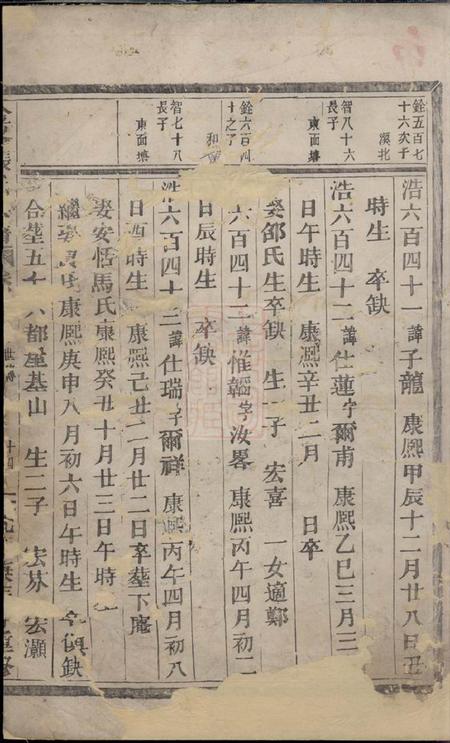 銓五百七
十六次子
溪北
浩六百四十一諱子龍 康熙甲辰十二月廿八日丑
時生 卒缺
智八十六
長子
東面塘
浩六百四十二諱仕蓮字爾甫 康熙乙巳三月三
日午時生 康熙辛丑二月 日卒
娶邵氏生卒缺 生一子 宏喜 一女適鄭
銓六百四
十之子
和
六百四十三諱惟韜字汝畧 康熙丙午四月初二
日辰時生 卒缺
智七十八
長子
東面塘
浩六百四十三諱仕瑞字爾祥 康熙丙午四月初八
日酉時生 康熙己丑二月廿二日卒塟下庵
娶安恬馬氏康熙癸丑十月廿三日午時
繼娶 氏康熙庚申八月初六日午時生 缺
合塟五十六都塟基山 生二子 宏林 宏灝